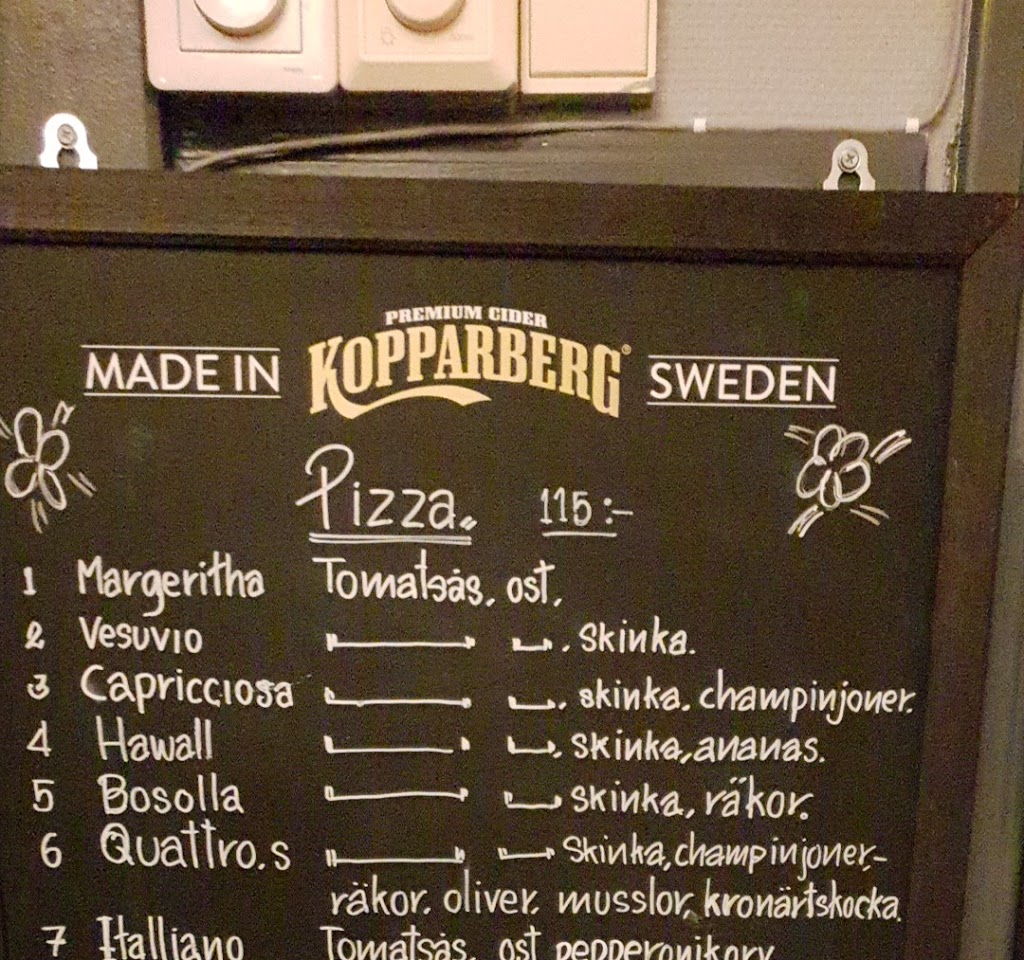 PREMIUM CIDER
MADE IN KOPPARBERG® SWEDEN
Pizza. 115:-
1 Margeritha Tomatsås, ost,
2 Vesuvio . Skinka.
3 Capricciosa . skinka. champinjoner.
4 Hawall . skinka, ananas.
5 Bosolla skinka, räkor.
6 Quattro.s Skinka, champinjoner,-
räkor. oliver. musslor, kronärtskocka.
7 Italliano Tomatsås, ost pepperonikorv